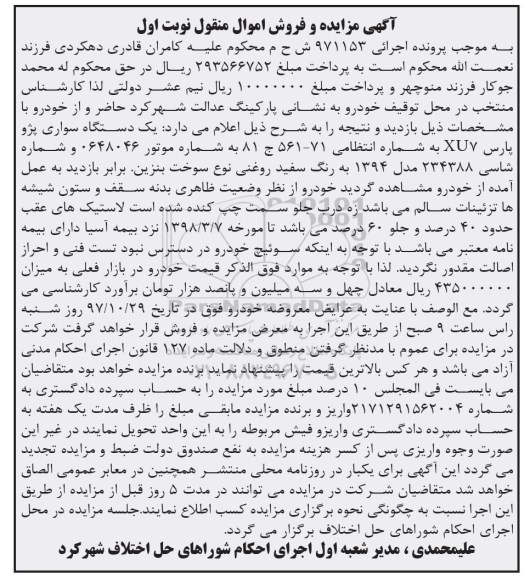 آگهی مزایده و فروش اموال منقول نوبت اول
به موجب پرونده اجرائی ۹۷۱۱۵۳ ش ح م محکوم علیه کامران قادری دهکردی فرزند
نعمت الله محکوم است به پرداخت مبلغ ۲۹۳۵۶۶۷۵۲ ریال در حق محکوم له محمد
جوکار فرزند منوچهر و پرداخت مبلغ ۱۰۰۰۰۰۰۰ ریال نیم عشر دولتی لذا کارشناس
منتخب در محل توقیف خودرو به نشانی پارکینگ عدالت شهرکرد حاضر و از خودرو با
مشخصات ذیل بازدید و نتیجه را به شرح ذیل اعلام می دارد: یک دستگاه سواری پژو
پارس XU۷ به شماره انتظامی ۷۱-۵۶۱ ج ۸۱ به شماره موتور ۰۶۴۸۰۴۶ و شماره
شاسی ۲۳۴۳۸۸ مدل ۱۳۹۴ به رنگ سفید روغنی نوع سوخت بنزین. برابر بازدید به عمل
آمده از خودرو مشاهده گردید خودرو از نظر وضعیت ظاهری بدنه سقف و ستون شیشه
ها تزئینات سالم می باشد. زه درب جلو سمت چپ کنده شده است لاستیک های عقب
حدود ۴۰ درصد و جلو ۶۰ درصد می باشد تا مورخه ۱۳۹۸/۳/۷ نزد بیمه آسیا دارای بیمه
نامه معتبر می باشد با توجه به اینکه سوئیچ خودرو در دسترس نبود تست فنی و احراز
اصالت مقدور نگردید. لذا با توجه به موارد فوق الذکر قیمت خودرو در بازار فعلی به میزان
۴۳۵۰۰۰۰۰۰ ریال معادل چهل و سه میلیون و پانصد هزار تومان برآورد کارشناسی می
گردد. مع الوصف با عنایت به عرایض معروضه خودرو فوق در تاریخ ۹۷/۱۰/۲۹ روز شنبه
راس ساعت ۹ صبح از طریق این اجرا به معرض مزایده و فروش قرار خواهد گرفت شرکت
در مزایده برای عموم با مدنظر گرفتن منطوق و دلالت ماده ۱۲۷ قانون اجرای احکام مدنی
آزاد می باشد و هر کس بالاترین قیمت را پیشنهاد نماید برنده مزایده خواهد بود متقاضیان
می بایست فی المجلس ۱۰ درصد مبلغ مورد مزایده را به حساب سپرده دادگستری به
شماره ۲۱۷۱۲۹۱۵۶۲۰۰۴واریز و برنده مزایده مابقی مبلغ را ظرف مدت یک هفته به
حساب سپرده دادگستری واریزو فیش مربوطه را به این واحد تحویل نمایند در غیر این
صورت وجوه واریزی پس از کسر هزینه مزایده به نفع صندوق دولت ضبط و مزایده تجدید
می گردد این آگهی برای یکبار در روزنامه محلی منتشر همچنین در معابر عمومی الصاق
خواهد شد متقاضیان شرکت در مزایده می توانند در مدت ۵ روز قبل از مزایده از طریق
این اجرا نسبت به چگونگی نحوه برگزاری مزایده کسب اطلاع نمایند.جلسه مزایده در محل
اجرای احکام شوراهای حل اختلاف برگزار می گردد.
علیمحمدی ، مدیر شعبه اول اجرای احکام شوراهای حل اختلاف شهرکرد